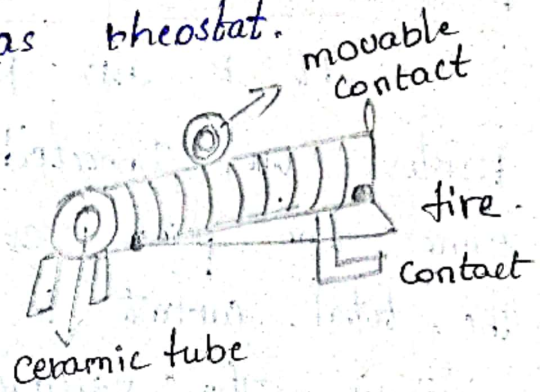 as rheostat.
movable
contact
fire.
contact
ceramic tube